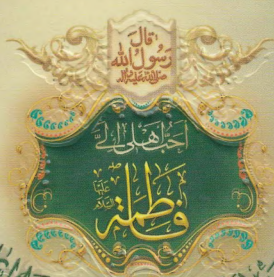 قال
رسول الله
صلى الله عليه وآله
احب اهلی الیّ
فاطمة
علیها السلام